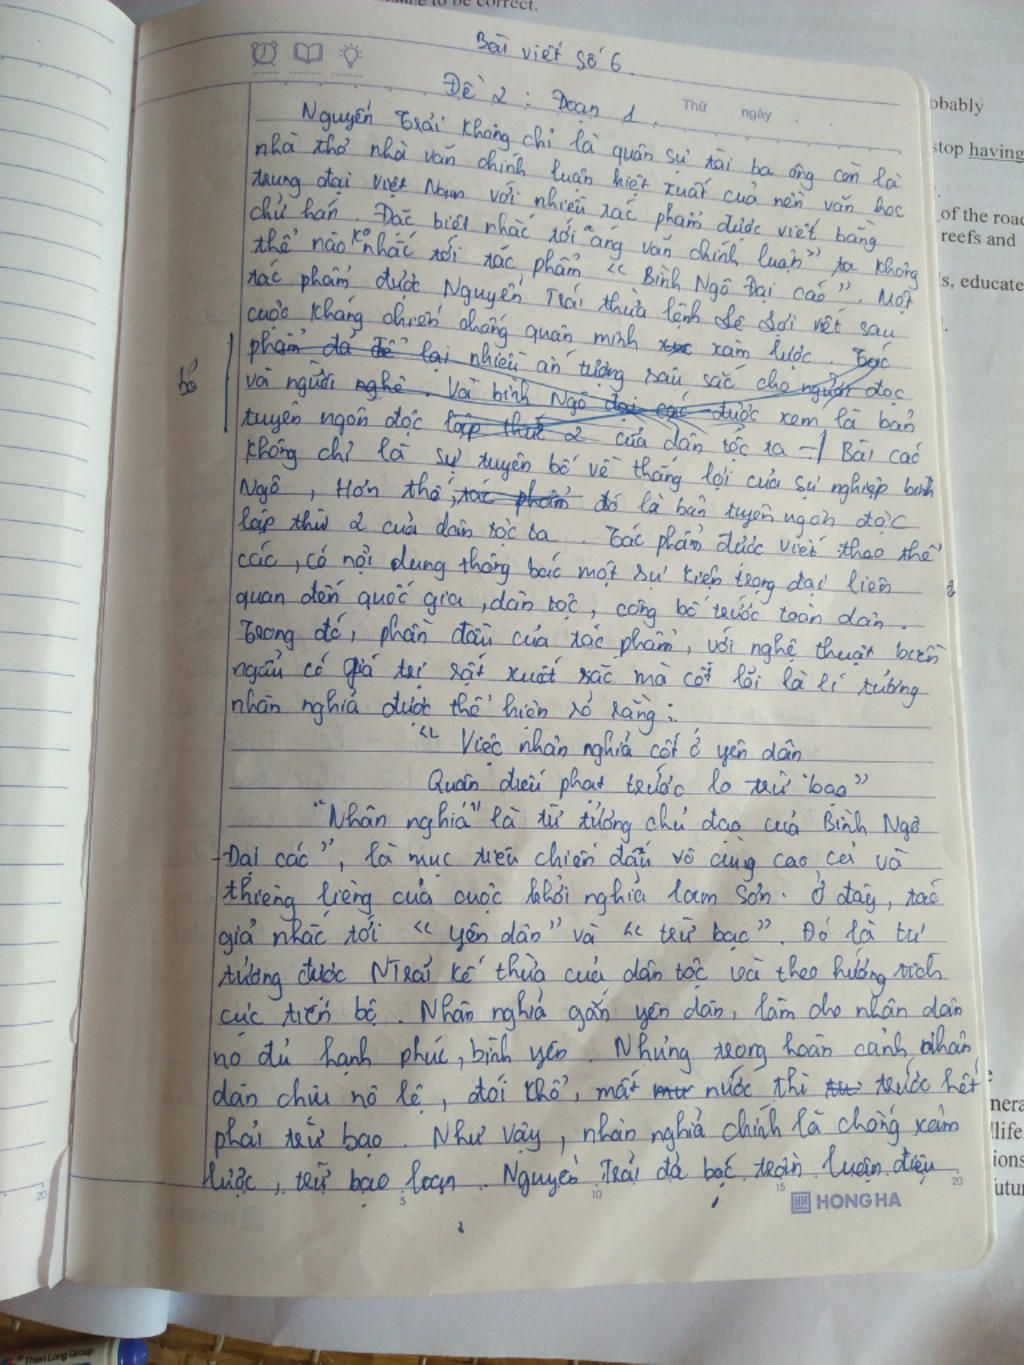 nance to be correct.
Bài viết số 6.
Đề 2 : Đoạn 1.
Thứ ngày
Nguyễn Trãi không chỉ là quân sự tài ba ông còn là
nhà thơ nhà văn chính luận kiệt xuất của nền văn học
trung đại Việt Nam với nhiều tác phẩm được viết bằng
chữ hán. Đặc biệt nhắc tới "áng văn chính luận" ta không
thể nào ko nhắc tới tác phẩm "Bình Ngô Đại cáo". Một
tác phẩm được Nguyễn Trãi thừa lệnh Lê Lợi viết sau
cuộc kháng chiến chống quân minh xâm lược. Tác
phẩm đã để lại nhiều ấn tượng sâu sắc cho người đọc
và người nghe. Và bình Ngô đại cáo được xem là bản
bỏ
tuyên ngôn độc lập thứ 2 của dân tộc ta Bài cáo
không chỉ là sự tuyên bố về thắng lợi của sự nghiệp bình
Ngô, Hơn thế, tác phẩm đó là bản tuyên ngôn độc
lập thứ 2 của dân tộc ta. Tác phẩm được viết theo thể
cáo, có nội dung thông báo một sự kiện trọng đại liên
quan đến quốc gia, dân tộc, công bố trước toàn dân.
Trong đó, phần đầu của tác phẩm, với nghệ thuật biền
ngẫu có giá trị rất xuất sắc mà cốt lõi là lí tưởng
nhân nghĩa được thể hiện rõ ràng:
"Việc nhân nghĩa cốt ở yên dân
Quân điếu phạt trước lo trừ bạo"
"Nhân nghĩa" là từ tưởng chủ đạo của Bình Ngô
Đại cáo", là mục tiêu chiến đấu vô cùng cao cả và
thiêng liêng của cuộc khởi nghĩa lam Sơn. Ở đây, tác
giả nhắc tới "yên dân" và "trừ bạo". Đó là tư
tưởng được NTrãi kế thừa của dân tộc và theo hướng tích
cực tiến bộ. Nhân nghĩa gắn yên dân, làm cho nhân dân
no đủ hạnh phúc, bình yên. Nhưng trong hoàn cảnh nhân
dân chịu nô lệ, đói khổ, mất nước thì trước hết
phải trừ bạo. Như vậy, nhân nghĩa chính là chống xâm
lược, trừ bạo loạn. Nguyễn Trãi đã bọc trần luận điệu
5 10 15 20
HONG HA
20
obably
stop having
of the road
reefs and
s, educate
nera
life
ions
utur
Thien Long Group